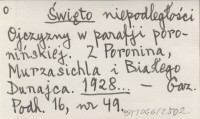 0
Święto niepodległości
Ojczyzny w parafji poro-
nińskiej. Z Poronina,
Murzasichla i Białego
Dunajca. 1928... – Gaz.
Podh. 16, nr 49.